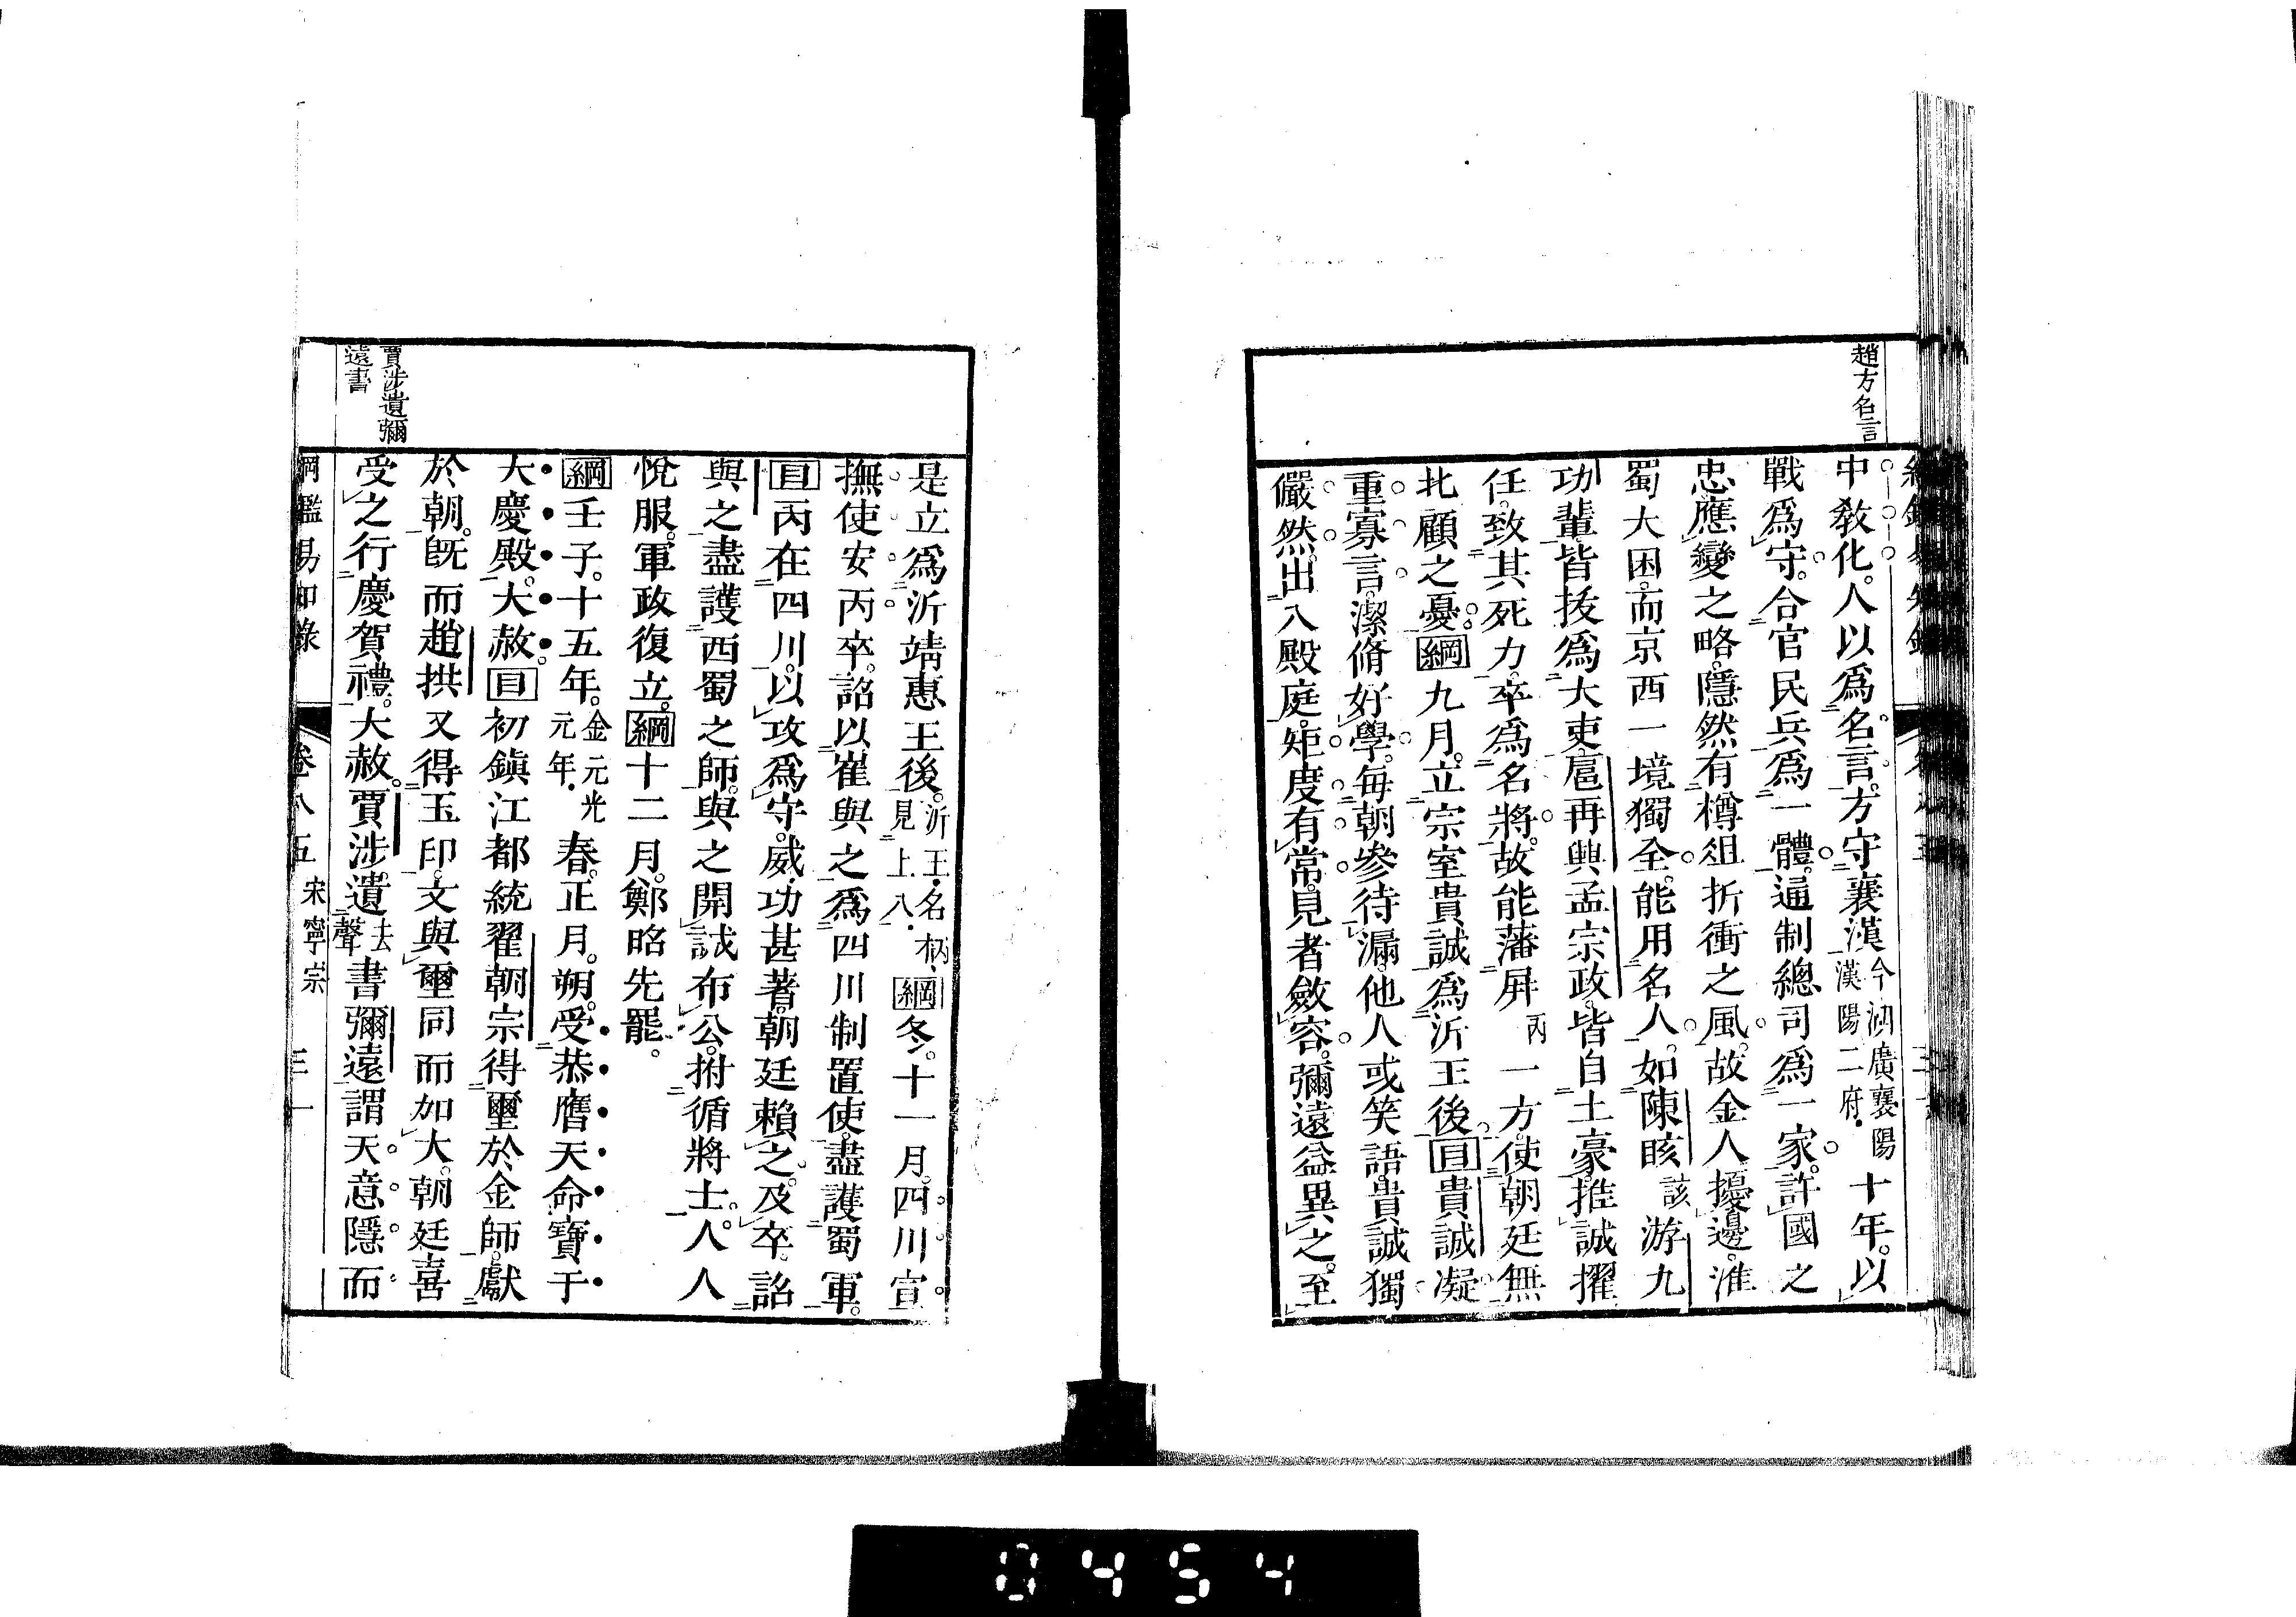 趙方名言
中敎化。人以爲名言。方守襄漢今湖廣襄陽漢陽二府。十年。以
戰爲守。合官民兵爲一體。通制總司爲一家。許國之
忠。應變之略。隱然有樽俎折衝之風。故金人擾邊。淮
蜀大困。而京西一境獨全。能用名人。如陳晐該游九
功輩。皆拔爲大吏。扈再興。孟宗政。皆自土豪。推誠擢
任。致其死力。卒爲名將。故能藩屛丙一方。使朝廷無
北顧之憂。綱九月。立宗室貴誠爲沂王後。目貴誠凝
重寡言。潔脩好學。每朝參待漏。他人或笑語。貴誠獨
儼然。出入殿庭。矩度有常。見者斂容。彌遠益異之。至
是立爲沂靖惠王後。沂王名柄。見上八。綱冬。十一月。四川宣
撫使安丙卒。詔以崔與之爲四川制置使。盡護蜀軍。
目丙在四川。以攻爲守。威功甚著。朝廷賴之。及卒。詔
與之盡護西蜀之師。與之開誠布公。拊循將士。人人
悅服。軍政復立。綱十二月。鄭昭先罷。
綱壬子。十五年。金元光元年。春。正月。朔。受恭膺天命寶于
大慶殿。大赦。目初鎭江都統翟朝宗得璽於金師。獻
於朝。旣而趙拱又得玉印。文與璽同而加大。朝廷喜
受之。行慶賀禮。大赦。賈涉。遺去聲書彌遠。謂天意隱而
賈涉遺彌
遠書
綱鑑易知錄 卷八五 宋寧宗 三一
0454